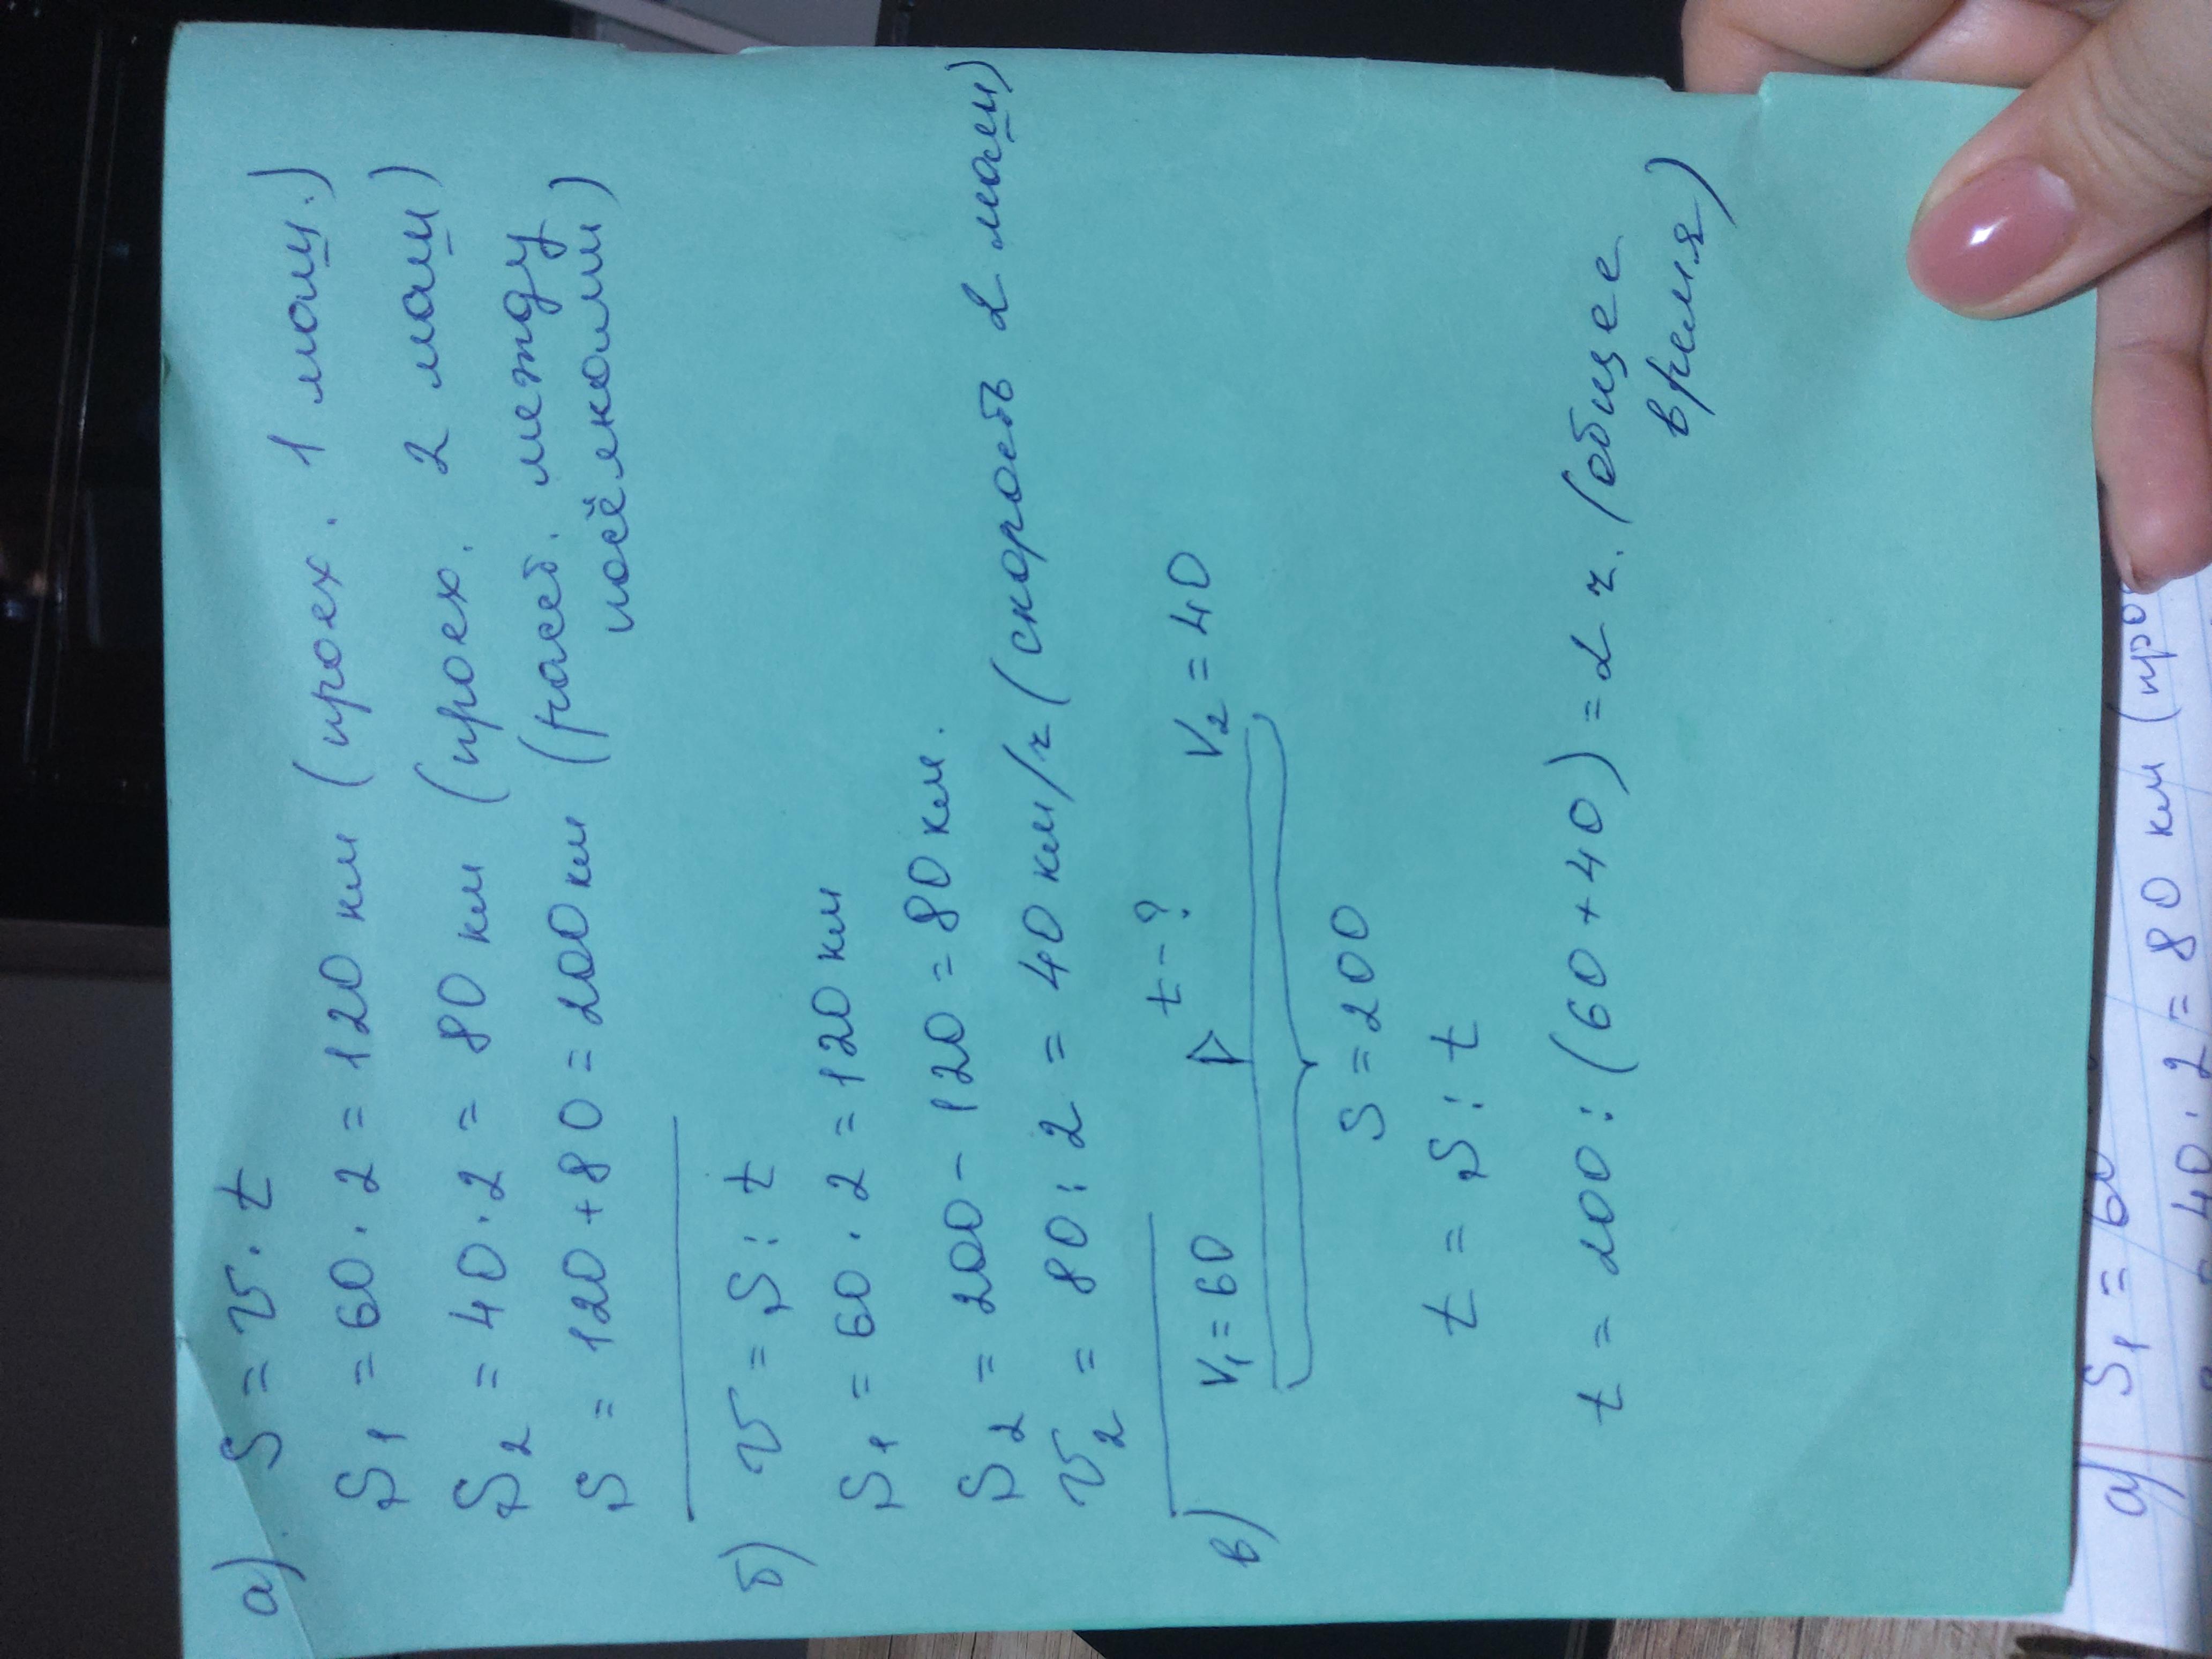 а) S = v · t
S₁ = 60 · 2 = 120 км (проех. 1 маш.)
S₂ = 40 · 2 = 80 км (проех. 2 маш)
S = 120 + 80 = 200 км (расст. между
посёлками)
б) v = S : t
S₁ = 60 · 2 = 120 км
S₂ = 200 - 120 = 80 км.
v₂ = 80 : 2 = 40 км/ч (скорость 2 маш)
в) V₁ = 60 t - ? V₂ = 40
S = 200
t = S : t
t = 200 : (60 + 40) = 2 ч. (общее
время)
а) S₁ = 60
40 · 2 = 80 км (про